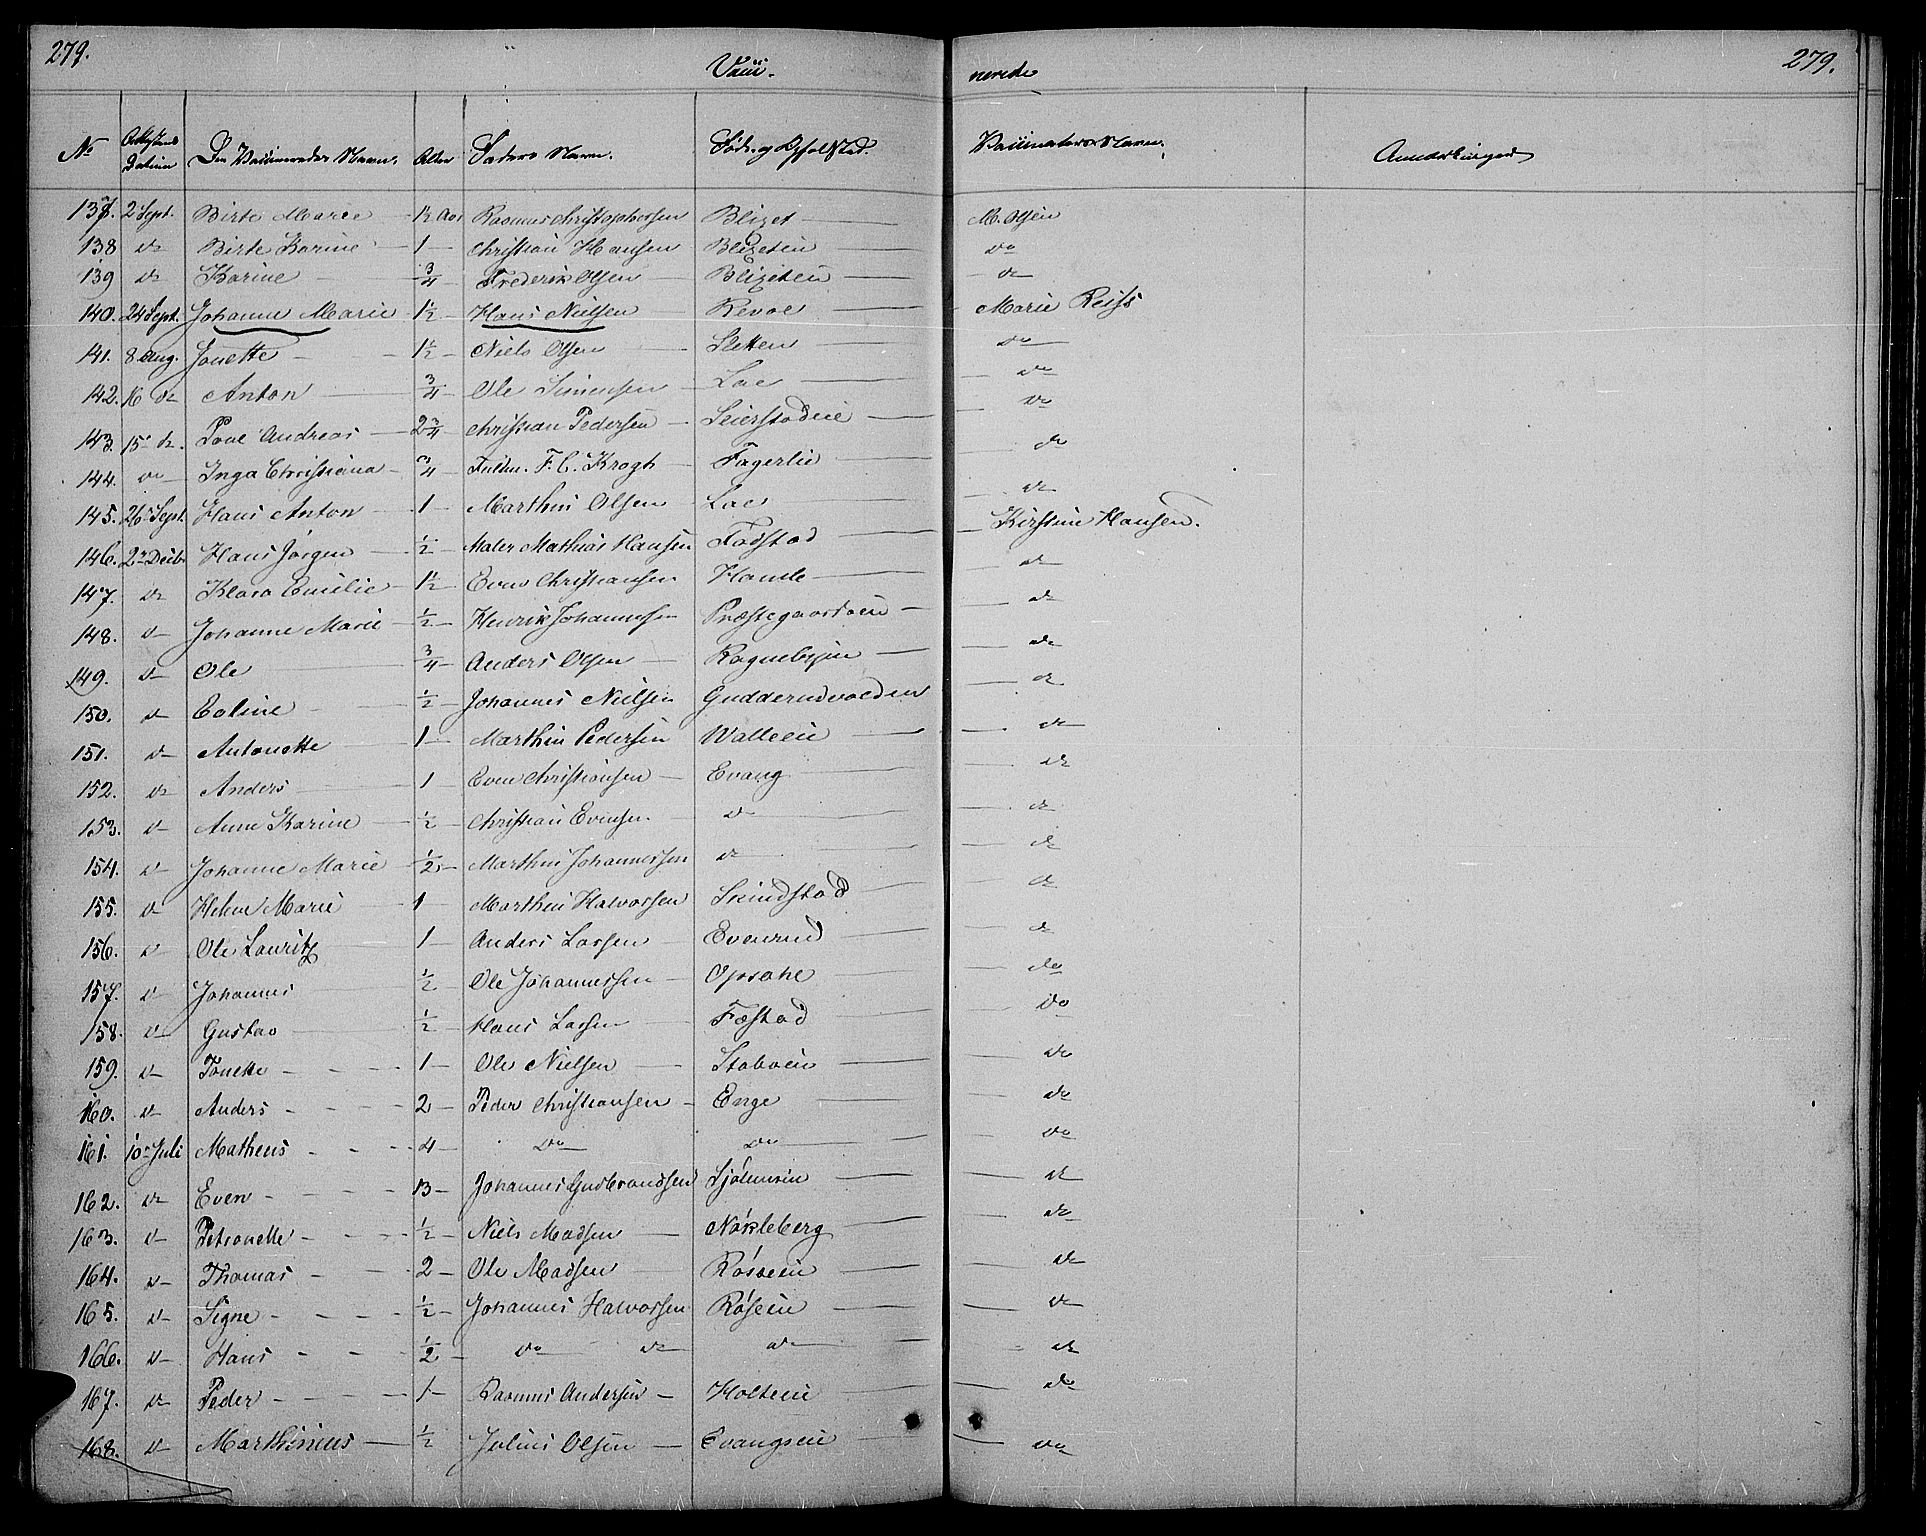 279. Vacci- nerede 279.
No Attestens Datum Den Vaccineredes Navn. Alder Faders Navn. Føde- og Opholdssted. Vaccinateurs Navn. Anmærkninger
137. 2 Sept. Birte Marie 1½ Aar Rasmus Christophersen Blizet M. Olsen
138 do Birte Karine 1 Christian Hansen Blizeteie do
139 do Karine ¾ Frederik Olsen Blizeteie do
140. 24 Sept. Johanne Marie 1½ Hans Nielsen Revoe Marie Reiss
141. 8 Aug. Jonette 1½ Niels Olsen Sletten do
142. 16 do Anton ¾ Ole Simensen Lae do
143. 15 do Povel Andreas 2¾ Christian Pedersen Seierstadeie do
144. do Inga Christiana ¾ F. C. Krogh Fagerlie do
145. 26 Sept. Hans Anton 1 Marthin Olsen Lae do
146. 2 Decb. Hans Jørgen ½ Maler Mathias Hansen Fodstad Kirstine Hansen.
147. do Klara Emilie 1½ Even Christiansen do
148. do Johanne Marie ½ Henrik Johannessen Præstegaardseie do
149. do Ole ¾ Anders Olsen do
150. do Eoline ½ Johannes Nielsen Gudderudvolden do
151. do Antonette 1 Marthin Pedersen Walleeie do
152. do Anders 1 Even Christiansen Evang do
153. do Anne Karine ½ Christian Evensen do do
154. do Johanne Marie ½ Marthin Johannessen do do
155. do Helene Marie 1 Marthin Halvorsen Skindstad do
156. do Ole Lauritz 1 Anders Larsen Evenrud do
157. do Johannes ½ Ole Johannessen Opsahl do
158. do Gustav ½ Hans Larsen Fæstad do
159. do Tonette 1 Ole Nielsen Staboeie do
160. do Anders 2 Peder Christiansen Enge do
161. 10 Juli Matheus 4 do do do
162. do Even 13 Johannes Gudbrandsen do
163. do Petronelle ½ Niels Madsen Nøkleberg do
164. do Thomas 2 Ole Madsen Røseeie do
165. do Signe ½ Johannes Halvorsen Røseeie do
166. do Hans ½ do do do do
167. do Peder 1 Rasmus Andersen Holteeie do
168. do Marthinius ½ Julius Olsen Evangseie do